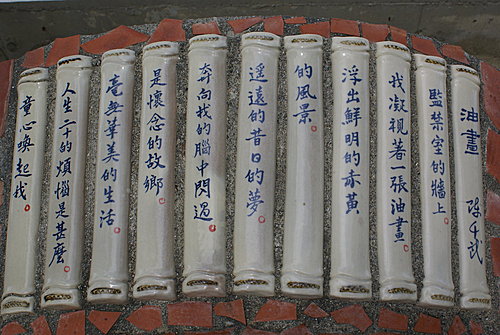 油畫 陳千武
監禁室的牆上
我凝視著一張油畫
浮出鮮明的赤黃
的風景
遙遠的昔日的夢
奔向我的腦中閃過
是懷念的故鄉
毫無華美的生活
人生二十的煩惱是甚麼
童心喚起我